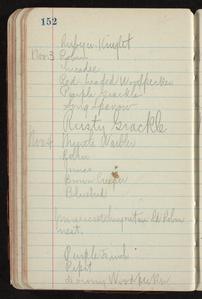 152
Ruby cr. Kinglet
Nov. 3 Robin
Chicadee
Red headed Woodpecker
Purple Grackle
Song Sparrow
Rusty Grackle
Nov 4 Myrtle Warbler
Robin
Junco
Brown Creeper
Bluebird
Robin
Purple Finch
Pipit
Downy Woodpecker